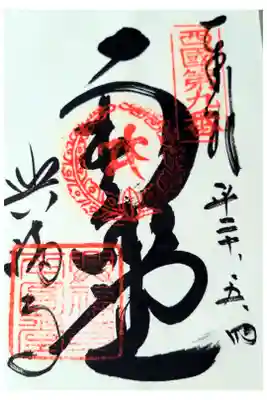 奉拝
西國第九番
平二十、五、四
南圓堂
興福寺